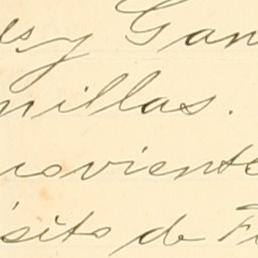 es y Gan
millas.
roviente
isito de F